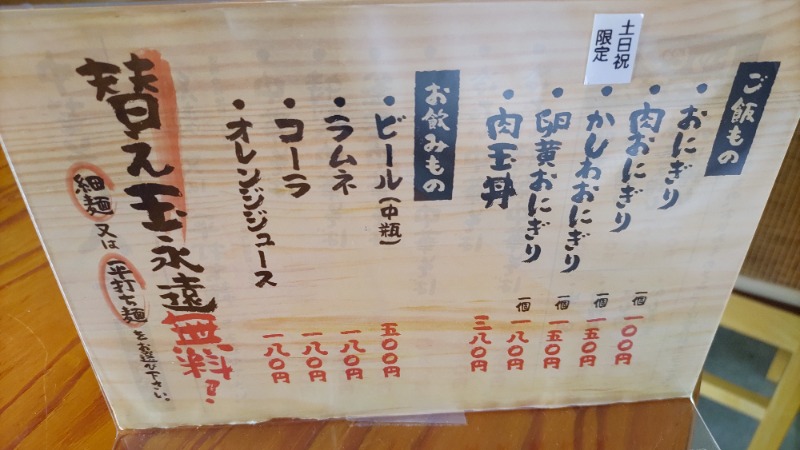 ご飯もの
・おにぎり 一個 一〇〇円
・肉おにぎり 一個 一五〇円
土日祝限定
・かしわおにぎり 一個 一五〇円
・卵黄おにぎり 一個 一八〇円
・肉玉丼 三八〇円
お飲みもの
・ビール(中瓶) 五〇〇円
・ラムネ 一八〇円
・コーラ 一八〇円
・オレンジジュース 一八〇円
替え玉永遠無料!
細麺 又は 平打ち麺 をお選び下さい。